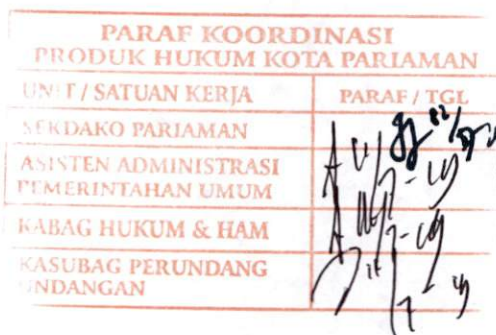 PARAF KOORDINASI
PRODUK HUKUM KOTA PARIAMAN
UNIT / SATUAN KERJA PARAF / TGL
SEKDAKO PARIAMAN
ASISTEN ADMINISTRASI
PEMERINTAHAN UMUM
KABAG HUKUM & HAM
KASUBAG PERUNDANG
UNDANGAN